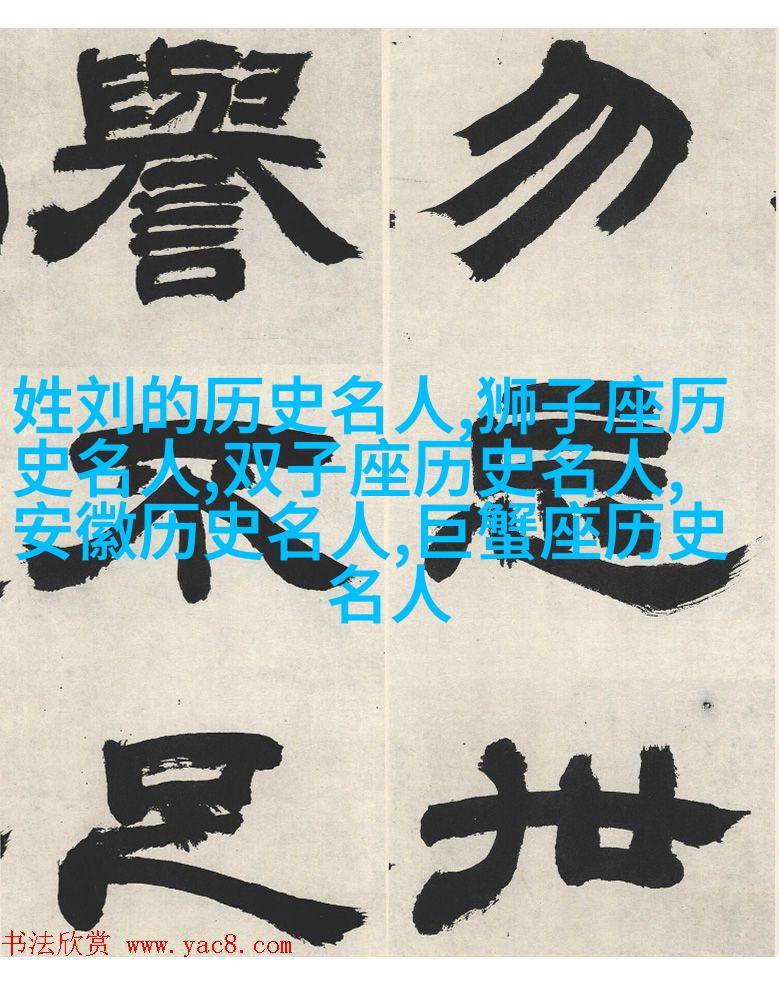 勿世
譽不足
姓刘的历史名人,狮子座历
史名人,双子座历史名人,
安徽历史名人,巨蟹座历史
名人
书法欣赏 www.yac8.com